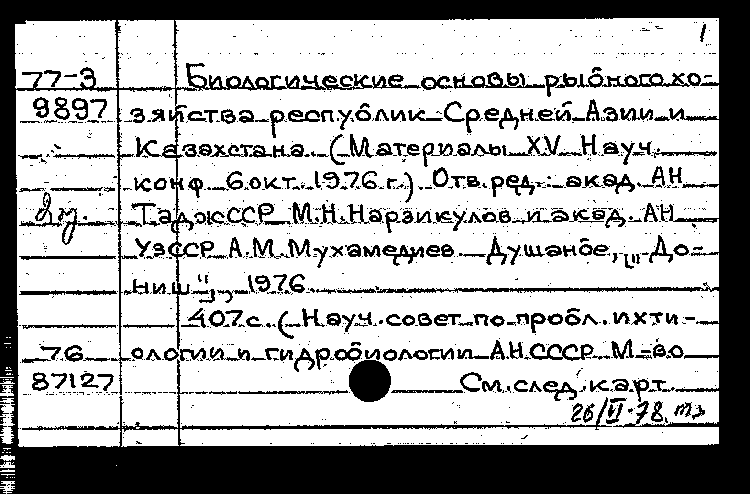 1
77-3 Биологические основы рыбного хо-
9897 зяйства республик Средней Азии и
Казахстана. (Материалы XV Науч.
конф. 6 окт. 1976 г.). Отв. ред.: акад. АН
ТаджССР М.Н. Нарзикулов и акад. АН
УзССР А.М. Мухамедиев. Душанбе, „До-
ниш“, 1976.
407 с. (Науч. совет по пробл. ихти-
76 ологии и гидробиологии АН СССР. М-во
87127 См. след. карт.
26/VI-78